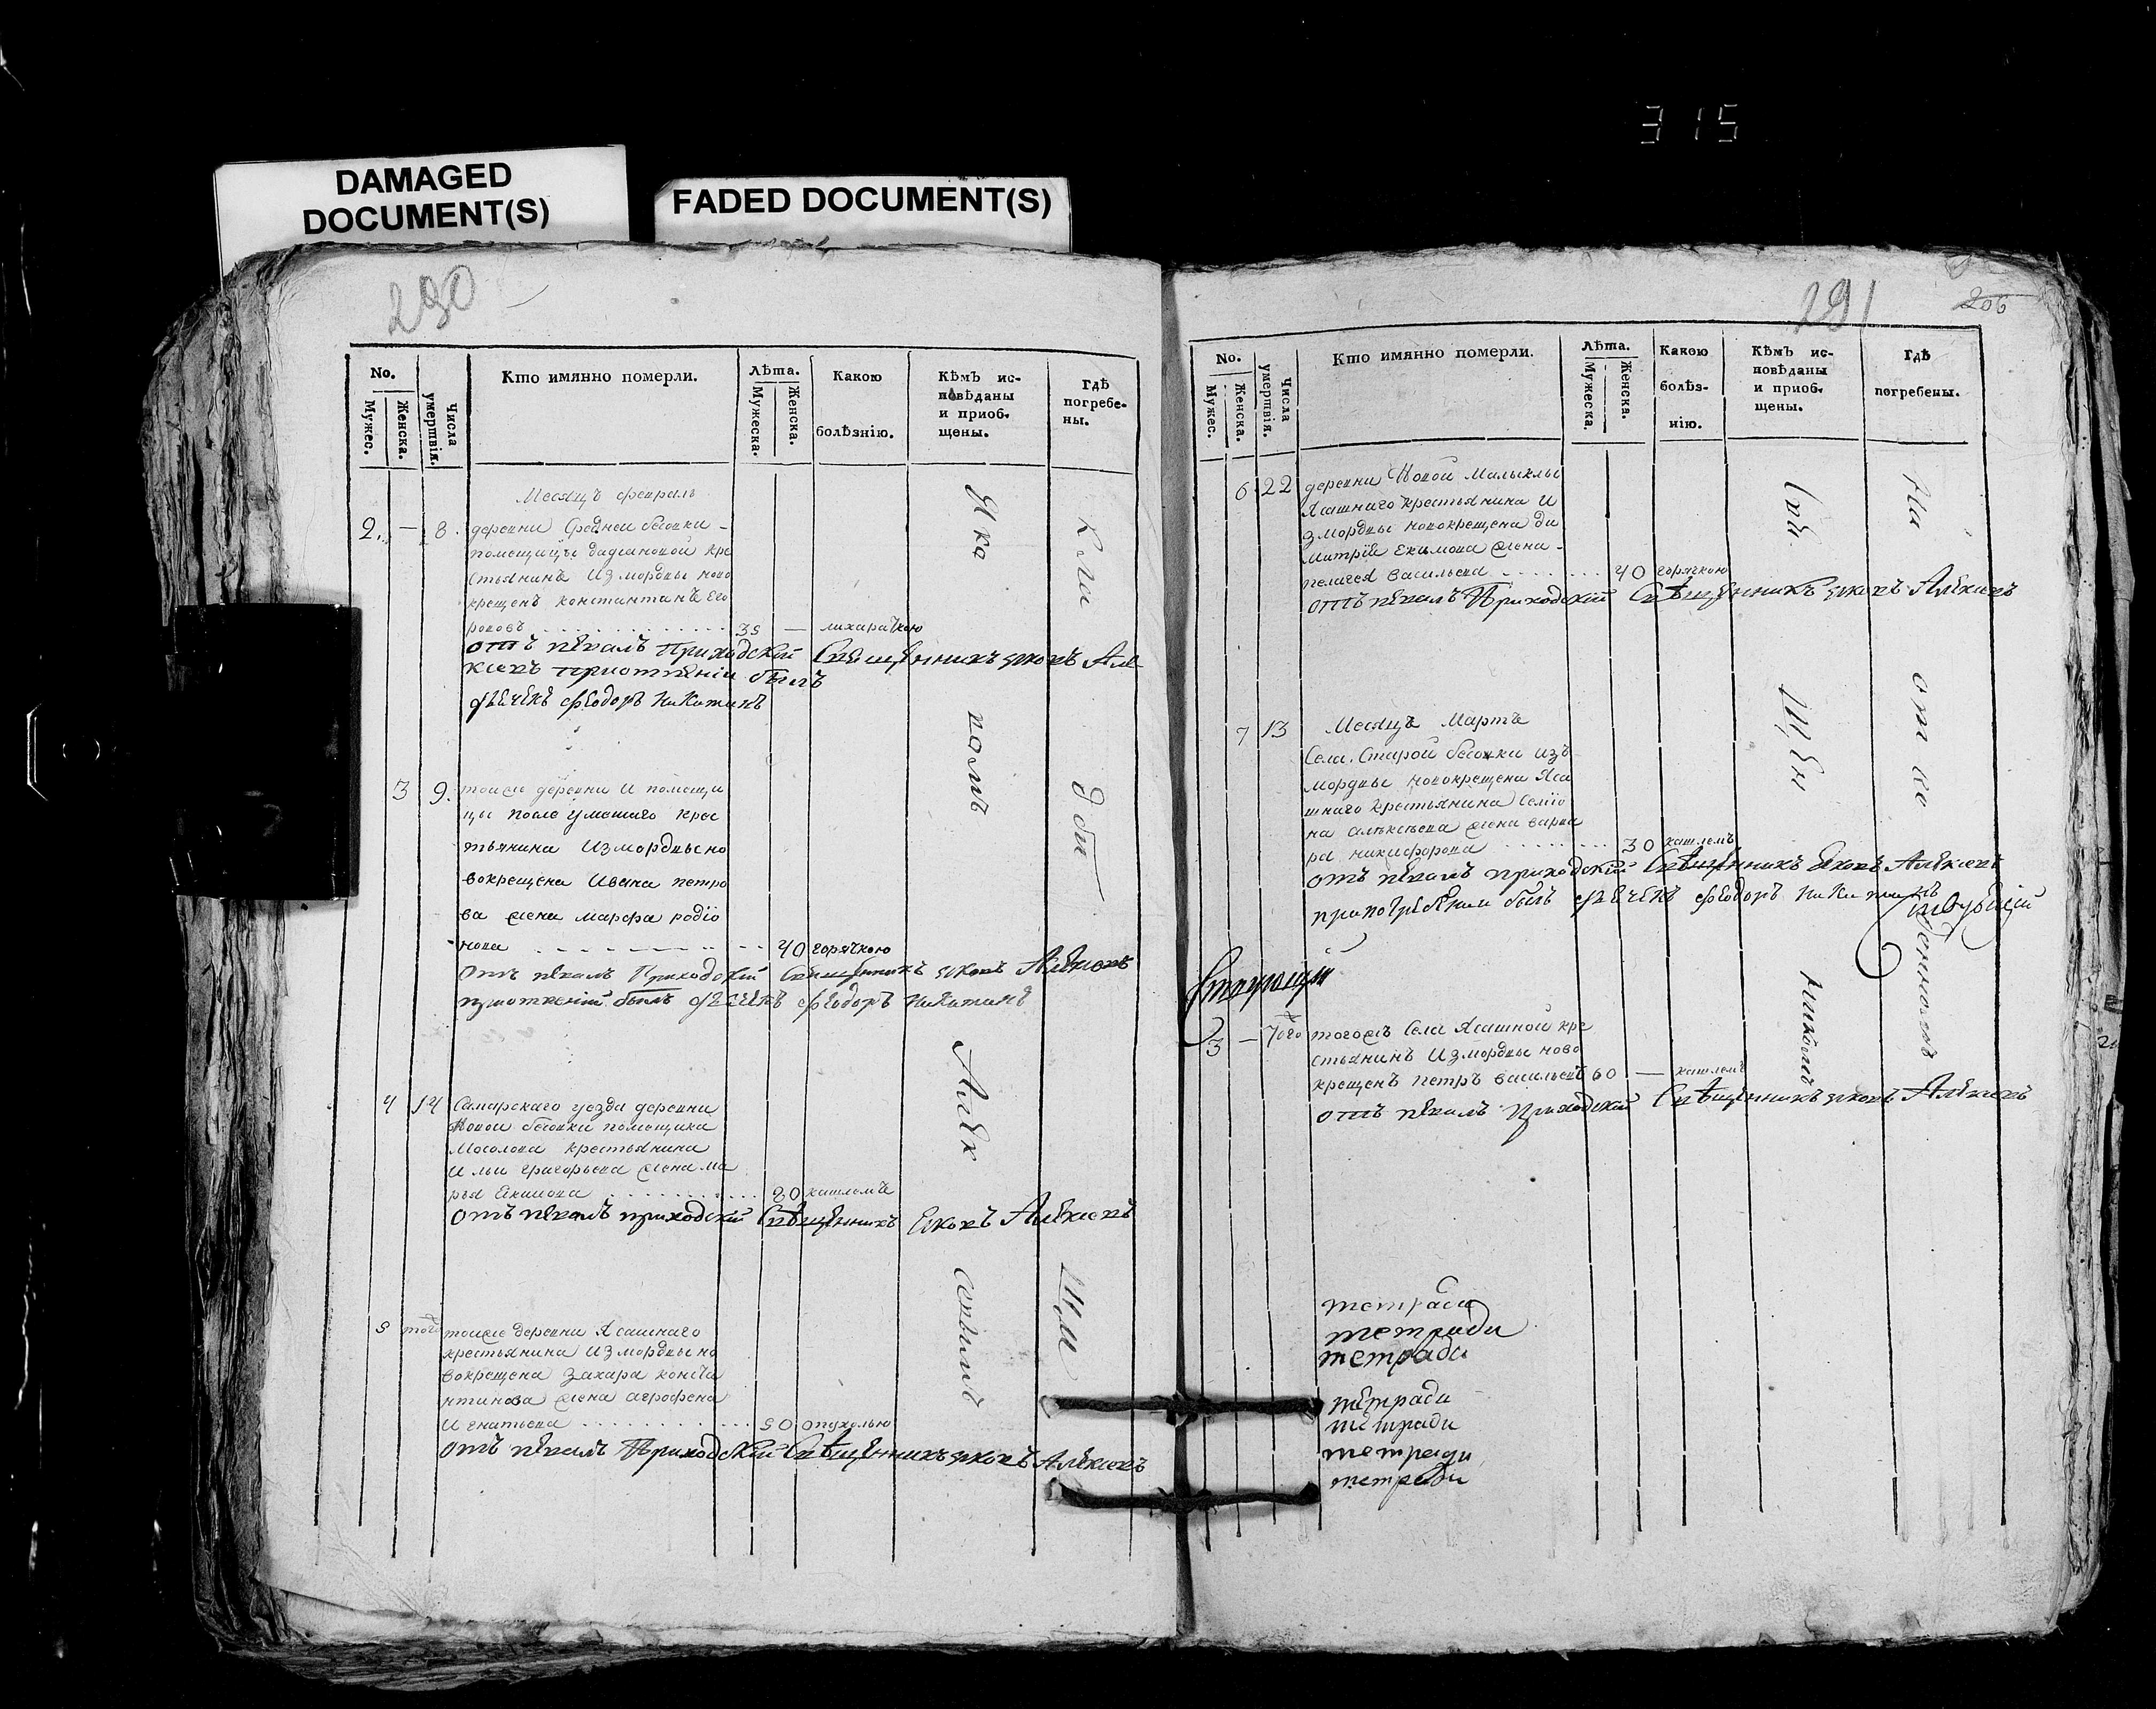 315
DAMAGED
DOCUMENT(S)
FADED DOCUMENT(S)
290
No.
Мужес.
Женска.
Числа умертвія.
Кто имянно померли.
Лѣта.
Мужеска.
Женска.
Какою
болѣзнію.
Кѣмъ ис-
повѣданы
и приоб-
щены.
Гдѣ
погребе-
ны.
Месяцъ февраль
2. — 8. деревни Среднеи бесовки
помещицы дадиановой кре
стьянинъ Из мордвы ново
крещенъ константинъ Его
ровъ 35 — лихарачкою
отъ певалъ Приходский Священникъ яковъ Але
ксевъ
былъ
дьячекъ феодоръ Никитинъ
3 9. тоиже деревни И помещи
цы после умешаго крес
тьянина Из мордвы но
вокрещена Ивана петро
ва жена марфа родїо
нова 40 горячкою
отъ певалъ Приходский Священникъ яковъ Алексевъ
былъ дьячекъ феодоръ Никитинъ
4 14 Самарскаго уезда деревни
Новои бесовки помещика
Мосолова крестьянина
Ильи григорьева жена ма
рья Екимова 30 кашлемъ
отъ певалъ приходский Свѣщенникъ яковъ Алексевъ
5 того тоиже деревни Ясашнаго
крестьянина Из мордвы но
вокрещена Захара конста
нтинова жена агрофена
Игнатьева 50 опухолью
отъ певалъ Приходский Свѣщенникъ яковъ Алексевъ
Яко
вомъ
Алек
Сѣвымъ
Кла
дби
Щи
291
206
No.
Мужес.
Женска.
Числа умертвія.
Кто имянно померли.
Лѣта.
Мужеска.
Женска.
Какою
болѣз-
нію.
Кѣмъ ис-
повѣданы
и приоб-
щены.
Гдѣ
погребены.
6 22 деревни Новои Малыклы
Ясашнаго крестьянина И
з мордвы новокрещена ди
митрїя Екимова жена
пелагея васильева 40 горячкою
отъ певалъ Приходский Свѣщенникъ яковъ Алексевъ
Месяцъ Мартъ
7 13 Села Старой бесовки изъ
мордвы новокрещена Яса
шнаго крестьянина Семїо
на алексѣева жена варва
ра никифорова 30 кашлемъ
отъ певалъ приходский Свѣщенникъ яковъ Алексевъ
при погребении былъ дьячекъ феодоръ Никитинъ
3 — того тогожъ Села Ясашной кре
стьянинъ Из мордвы ново
крещенъ петръ васильевъ 60 — кашлемъ
отъ певалъ Приходский Свѣщенникъ яковъ Алексевъ
Свя
Щен
никомъ
На
от ве
денномъ
тетради
тетради
тетради
тетради
тетради
тетради
тетради